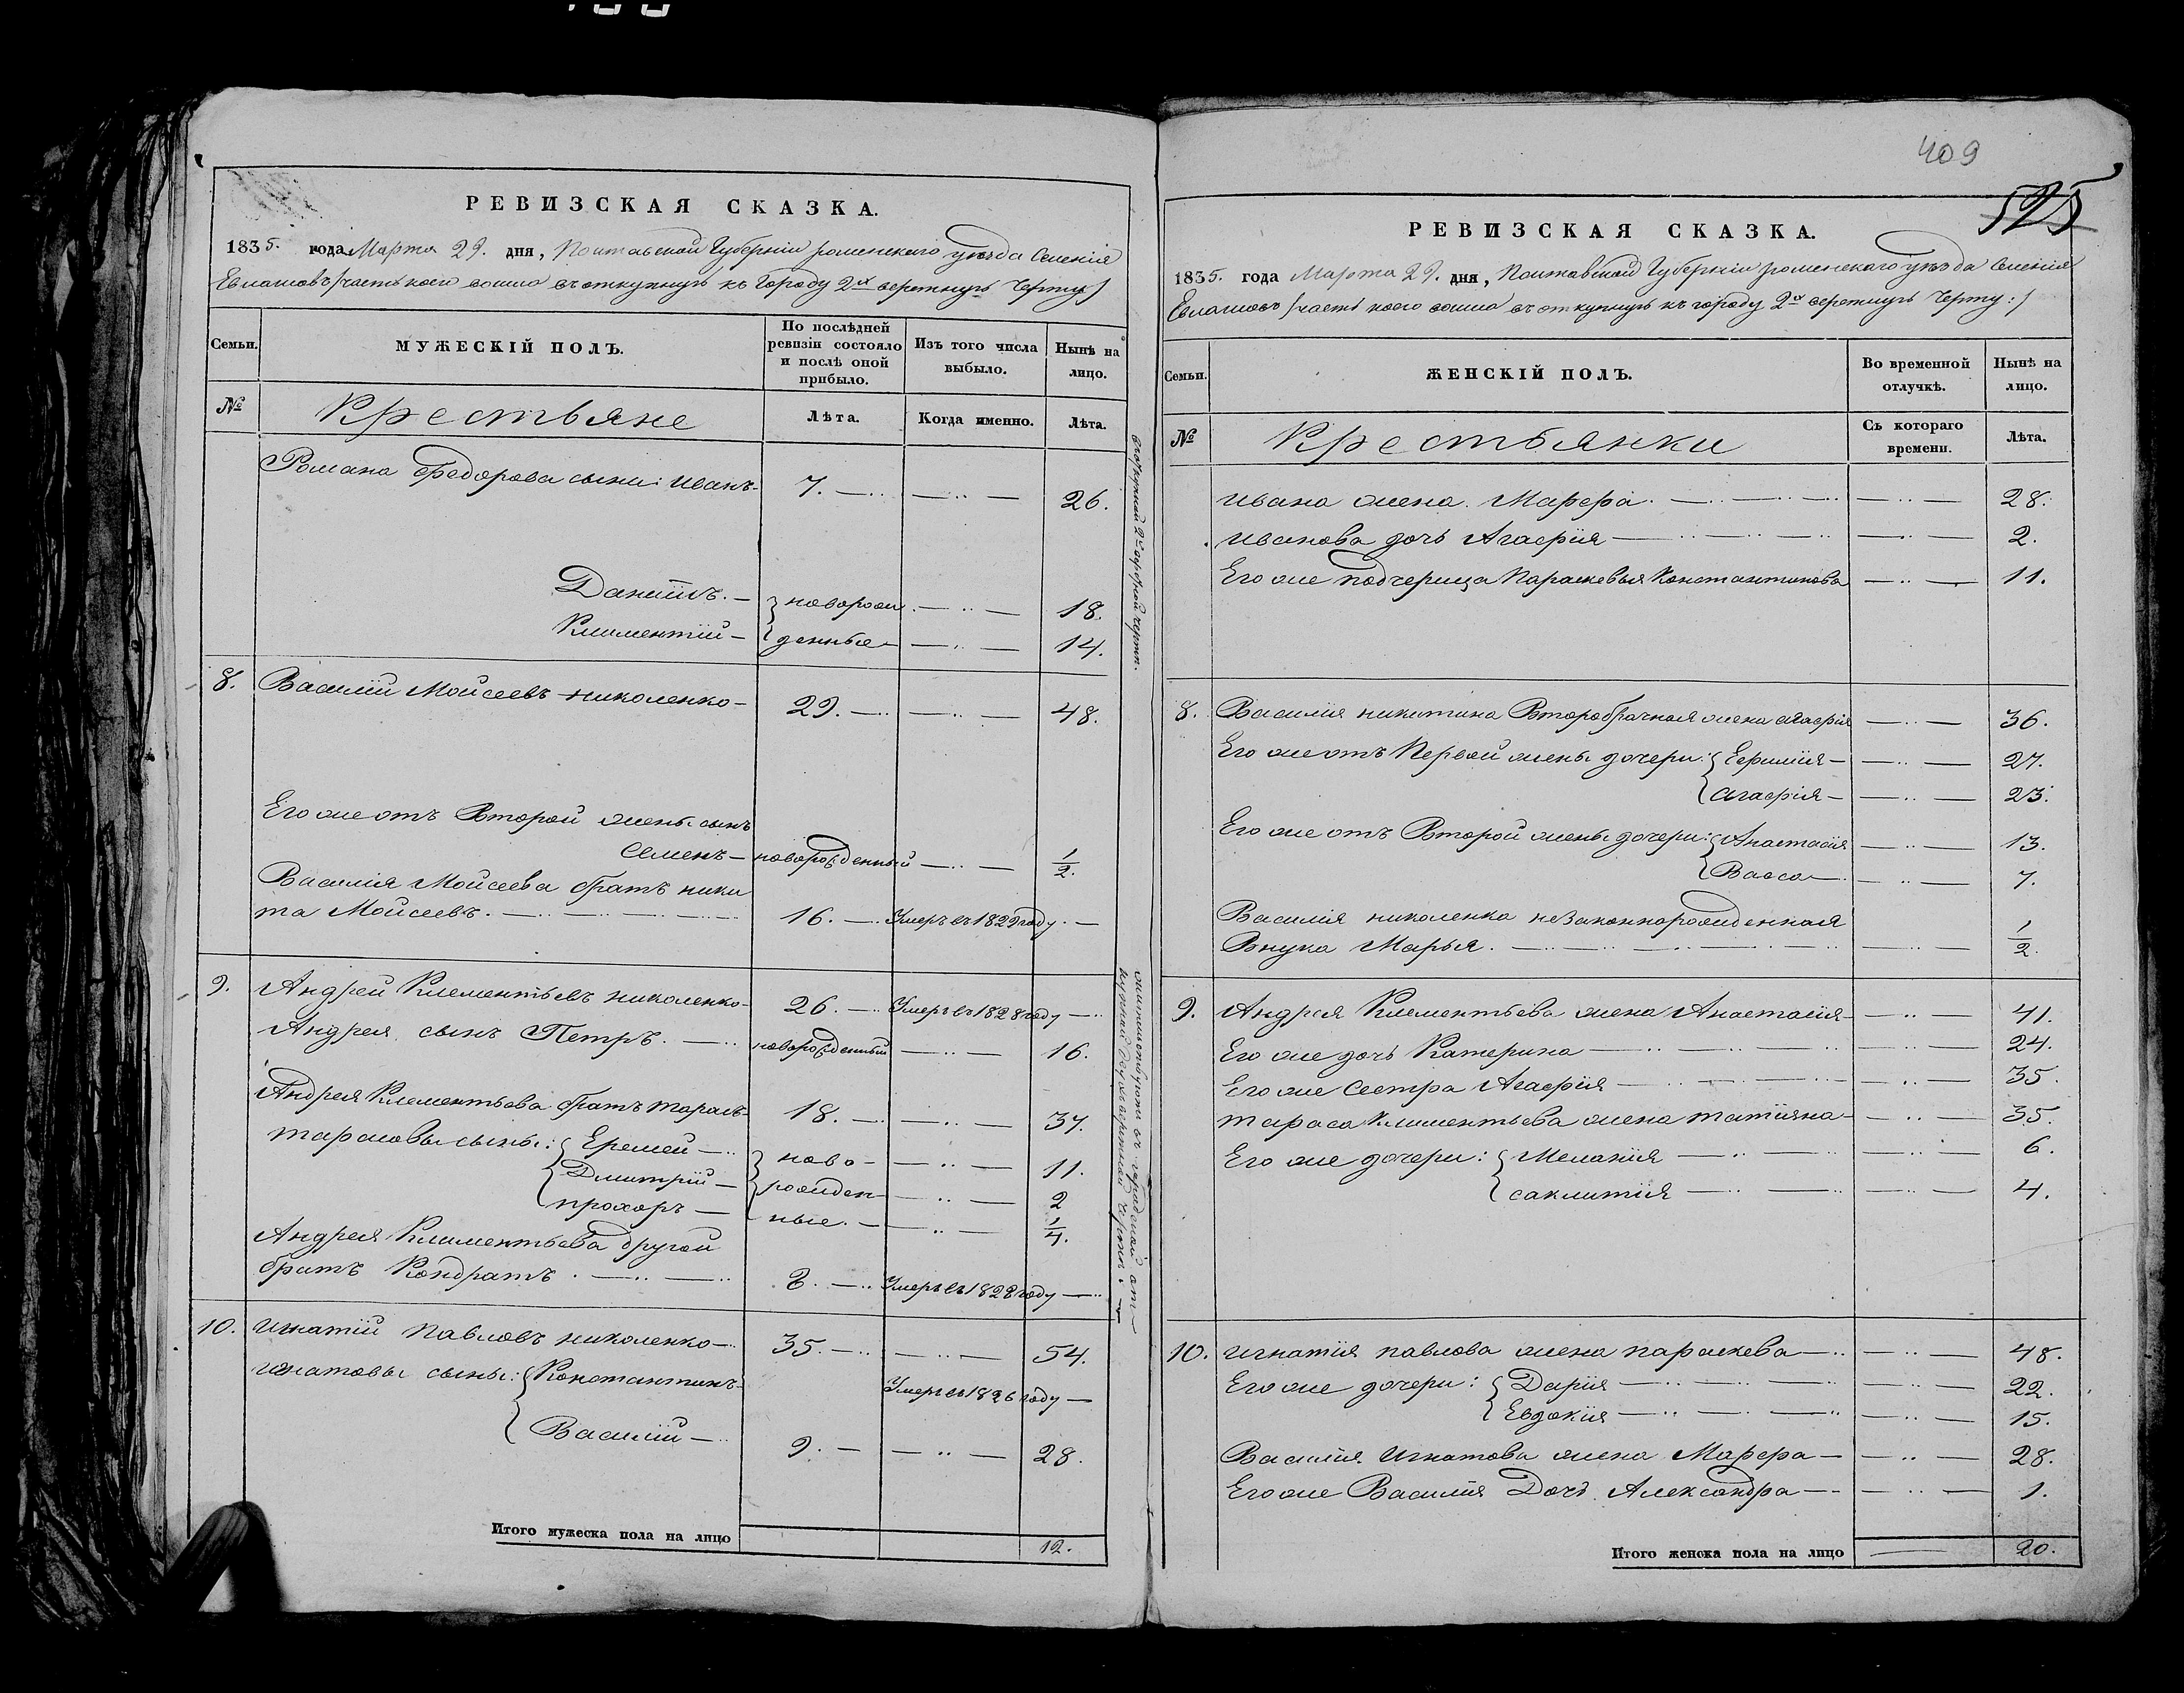 РЕВИЗСКАЯ СКАЗКА.
1835. года Марта 29. дня, Полтавской Губерніи роменскаго уѣзда Селенія
Евлашовъ /часть коего вошла въ откупную къ городу 2х верстную Черту/
Семьи.
МУЖЕСКІЙ ПОЛЪ.
По послѣдней ревизіи состояло и послѣ оной прибыло.
Изъ того числа выбыло.
Нынѣ на лицо.
№
Крестьяне
Лѣта.
Когда именно.
Лѣта.
Романа Федорова сыны: иванъ 7. 26.
Данiилъ. новорож 18.
Климентiй денные 14.
8. Василiй Мойсеевъ николенко 29. 48.
Его же отъ Второй жены сынъ
Семенъ новорожденный 1/2.
Василiя Мойсеева братъ ники
та Мойсеевъ. 16. Умеръ въ 1829 году.
9. Андрей Клементьевъ николенко 26. Умеръ въ 1828 году
Андрея сынъ Петръ. новорожденный 16.
Андрея Клементьева братъ тарасъ 18. 37.
тарасовы сыны: Еремей ново 11.
Дмитрiй рожден 2
прохоръ ные. 1/4.
Андрея Климентьева другой
братъ Кондратъ. Умеръ въ 1828 году
10. игнатiй павловъ николенко 35. 54.
игнатовы сыны: Константинъ Умеръ въ 1826 году
Василiй 9. 28.
Итого мужеска пола на лицо 12.
409
525
РЕВИЗСКАЯ СКАЗКА.
1835. года Марта 29. дня, Полтавской Губерніи роменскаго уѣзда Селенія
Евлашовъ /часть коего вошла въ откупную къ городу 2х верстную Черту:/
Семьи.
ЖЕНСКІЙ ПОЛЪ.
Во временной отлучкѣ.
Нынѣ на лицо.
№
Крестьянки
Съ котораго времени.
Лѣта.
ивана жена. Марфа. 28.
иванова дочь Агафiя 2.
Его же подчерица Параскевья Константинова 11.
8. Василiя никитина Второбрачная жена агафiя 36.
Его же отъ Первой жены дочери: Ефимiя 27.
агафiя 23.
Его же отъ Второй жены дочери: Анастасiя 13.
Васса 7.
Василiя николенка незаконнорожденная
Внука Марья. 1/2.
9. Андрея Клементьева жена Анастасiя 41.
Его же дочь Катерина 24.
Его же Сестра Агафiя 35.
тараса Климентьева жена татiяна 35.
Его же дочери: Меланiя 6.
саклитiя 4.
10. игнатiя павлова жена параскева 48.
Его же дочери: Дарiя 22.
Евдокiя 15.
Василiя Игнатова жена Марфа 28.
Его же Василiя Дочь Александра 1.
Итого женска пола на лицо 20.